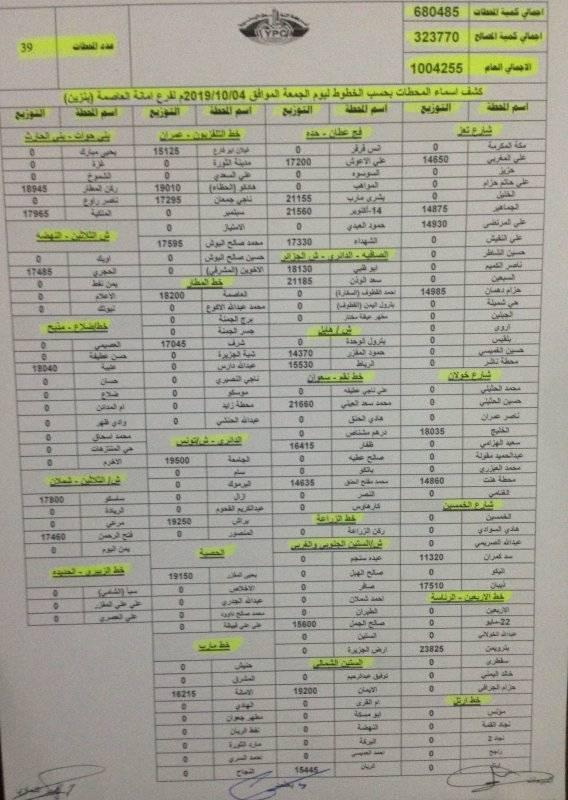 اجمالي كمية المحطات 680485
اجمالي كمية المصالح 323770
الاجمالي العام 1004255
عدد المحطات 39
YPC
كشف اسماء المحطات بحسب الخطوط ليوم الجمعة الموافق 2019/10/04م لفرع امانة العاصمة (بنزين)
اسم المحطة التوزيع اسم المحطة التوزيع اسم المحطة التوزيع اسم المحطة التوزيع
شارع تعز
مكة المكرمة 0
علي المغربي 14650
حزيز 0
علي حاتم حزام 0
الخليل 0
الجماهير 14875
علي المرتضى 14930
علي النقيش 0
حسين الشاطر 0
ناصر الكميم 0
السبعين 0
حزام دهمان 14985
هي شميلة 0
الجبلين 0
اروى 0
بلقيس 0
حسين الخميسي 0
محطة ناشر 0
شارع خولان
محمد الحثيلي 0
حسين الحثيلي 0
ناصر عمران 0
الخليج 18035
سعيد الهزامي 0
عبدالحميد مقولة 0
محمد العيزري 0
محطة هنت 14860
القدامي 0
شارع الخمسين
الخمسين 0
هادي السوادي 0
عبدالله الصريمي 0
سد كمران 11320
اليكو 0
ذيبان 17510
خط الاربعين - الرئاسة
الاربعين 0
22-مايو 0
عبدالله الخولاني 0
بترويمن 23825
سقطرى 0
خالد اليمني 0
حزام الجرافي 0
خط ارتل
مؤنس 0
نجاد القمة 0
نجاد 2 0
راجح 0
فج عطان - حده
انس قرقر 0
علي الاعوش 17200
السوسوه 0
المواهب 0
بشرى مارب 21155
14-اكتوبر 21560
حمود العبدي 0
الشهداء 17330
الصافيه - الدائري - ش الجزائر
ابو ظبي 18130
سعد الوتن 21185
احمد القطوف (السفارة) 0
بترول اليمن (القطوف) 0
مطهر عيفة مختار 0
ش / هايل
بترول الوحدة 0
حمود المقزر 14370
الرباط 15530
خط نقم - سعوان
علي ناجي عطيفه 0
محمد سعد العيني 21660
هادي الحنق 0
درهم مشناص 0
ظفار 16415
صالح عطيه 0
باتكو 0
محمد مفتاح الحنق 14635
النصر 0
كارهاوس 0
خط الزراعة
ركن الزراعة 0
ش/الستين الجنوبي والغربي
عبده سنجم 0
صالح الهبل 0
صافر 0
احمد شملان 0
الطيران 0
صالح الجمل 15600
الستين 0
ارض الجزيرة 0
الستين الشمالي
توفيق عبدالرحيم 0
الايمان 19200
ام القرى 0
ابو مسكة 0
النهضة 0
البركة 0
احمد الحبيسي 0
الريان 15445
خط التلفزيون - عمران
غيلان ابو فارع 15125
مدينة الثورة 0
علي السعدي 0
هادكو (الحظاء) 19010
ناجي جمعان 17295
سبتمبر 0
الامتياز 0
محمد صالح البوش 17595
حسين صالح البوش 0
الاخوين (المشرقي) 0
خط المطار
العاصمة 18200
محمد عبدالله الاكوع 0
برج الجمنة 0
جسر الجمنة 0
شرف 17045
شبة الجزيرة 0
عبدالله دارس 0
ناجي النصيري 0
موسكو 0
محطة زايد 0
عبدالله الحنشي 0
الدائري - ش/تونس
الجامعة 19500
سام 0
اليرموك 0
ازال 0
عبدالكريم القحوم 0
براش 19250
المنصور 0
الحصبة
يحيى المقزر 19150
الاخلاص 0
عبدالله الجدري 0
محمد صالح داوود 0
علي علي فيلة 0
خط مارب
حنيش 0
المشرق 0
الامانة 16215
الهادي 0
مطهر جعوان 0
نفط الريان 0
مارد الثورة 0
احمد السري 0
النجاح 0
بني حوات - بني الحارث
يحيى مبارك 0
غزة 0
الشموخ 0
ركن المطار 18945
ناصر راوع 0
الملكية 17965
ش الثلاثين - النهضه
اوبك 0
الحجري 17485
يمن نفط 0
الاعلام 0
نيوتك 0
خط/ضلاع - منبح
العصيمي 0
حسن عطيفة 0
عليبة 18040
حسان 0
ضلاع 0
ام المدائن 0
وادي ظهر 0
محمد اسحاق 0
هي المنتزهات 0
الاخرم 0
ش/ ثلاثين - شملان
ساسكو 17800
الريادة 0
مرعي 0
فتح الرحمن 17460
يمن اليوم 0
خط الزبيري - الحديده
سبأ (الشامي) 0
علي علي المقزر 0
علي العصري 0